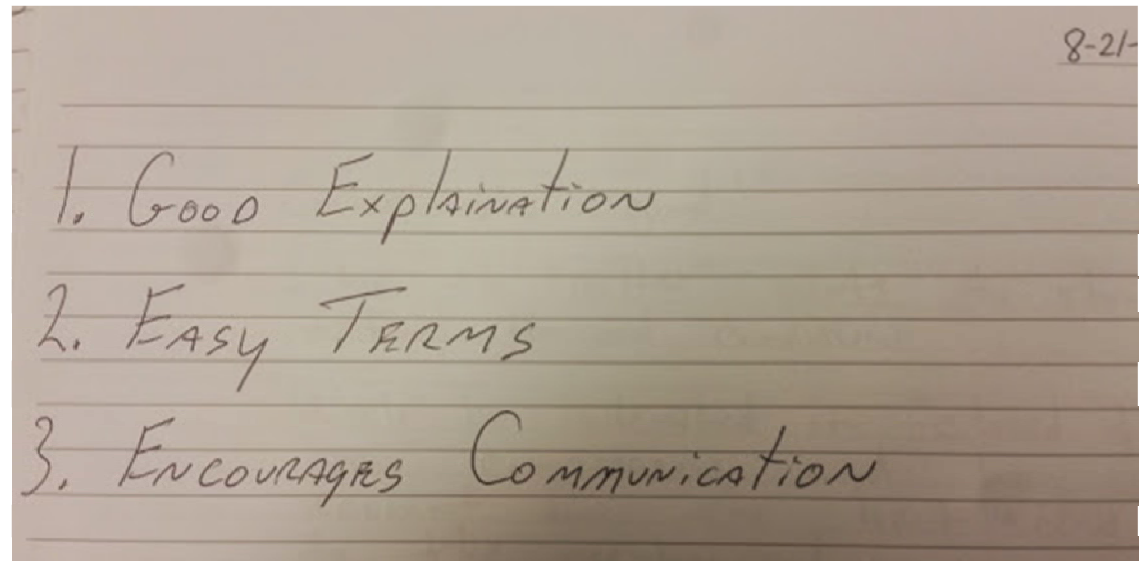 8-21-
1. Good Explaination
2. EASY TERMS
3. ENCOURAGES COMMUNICATION